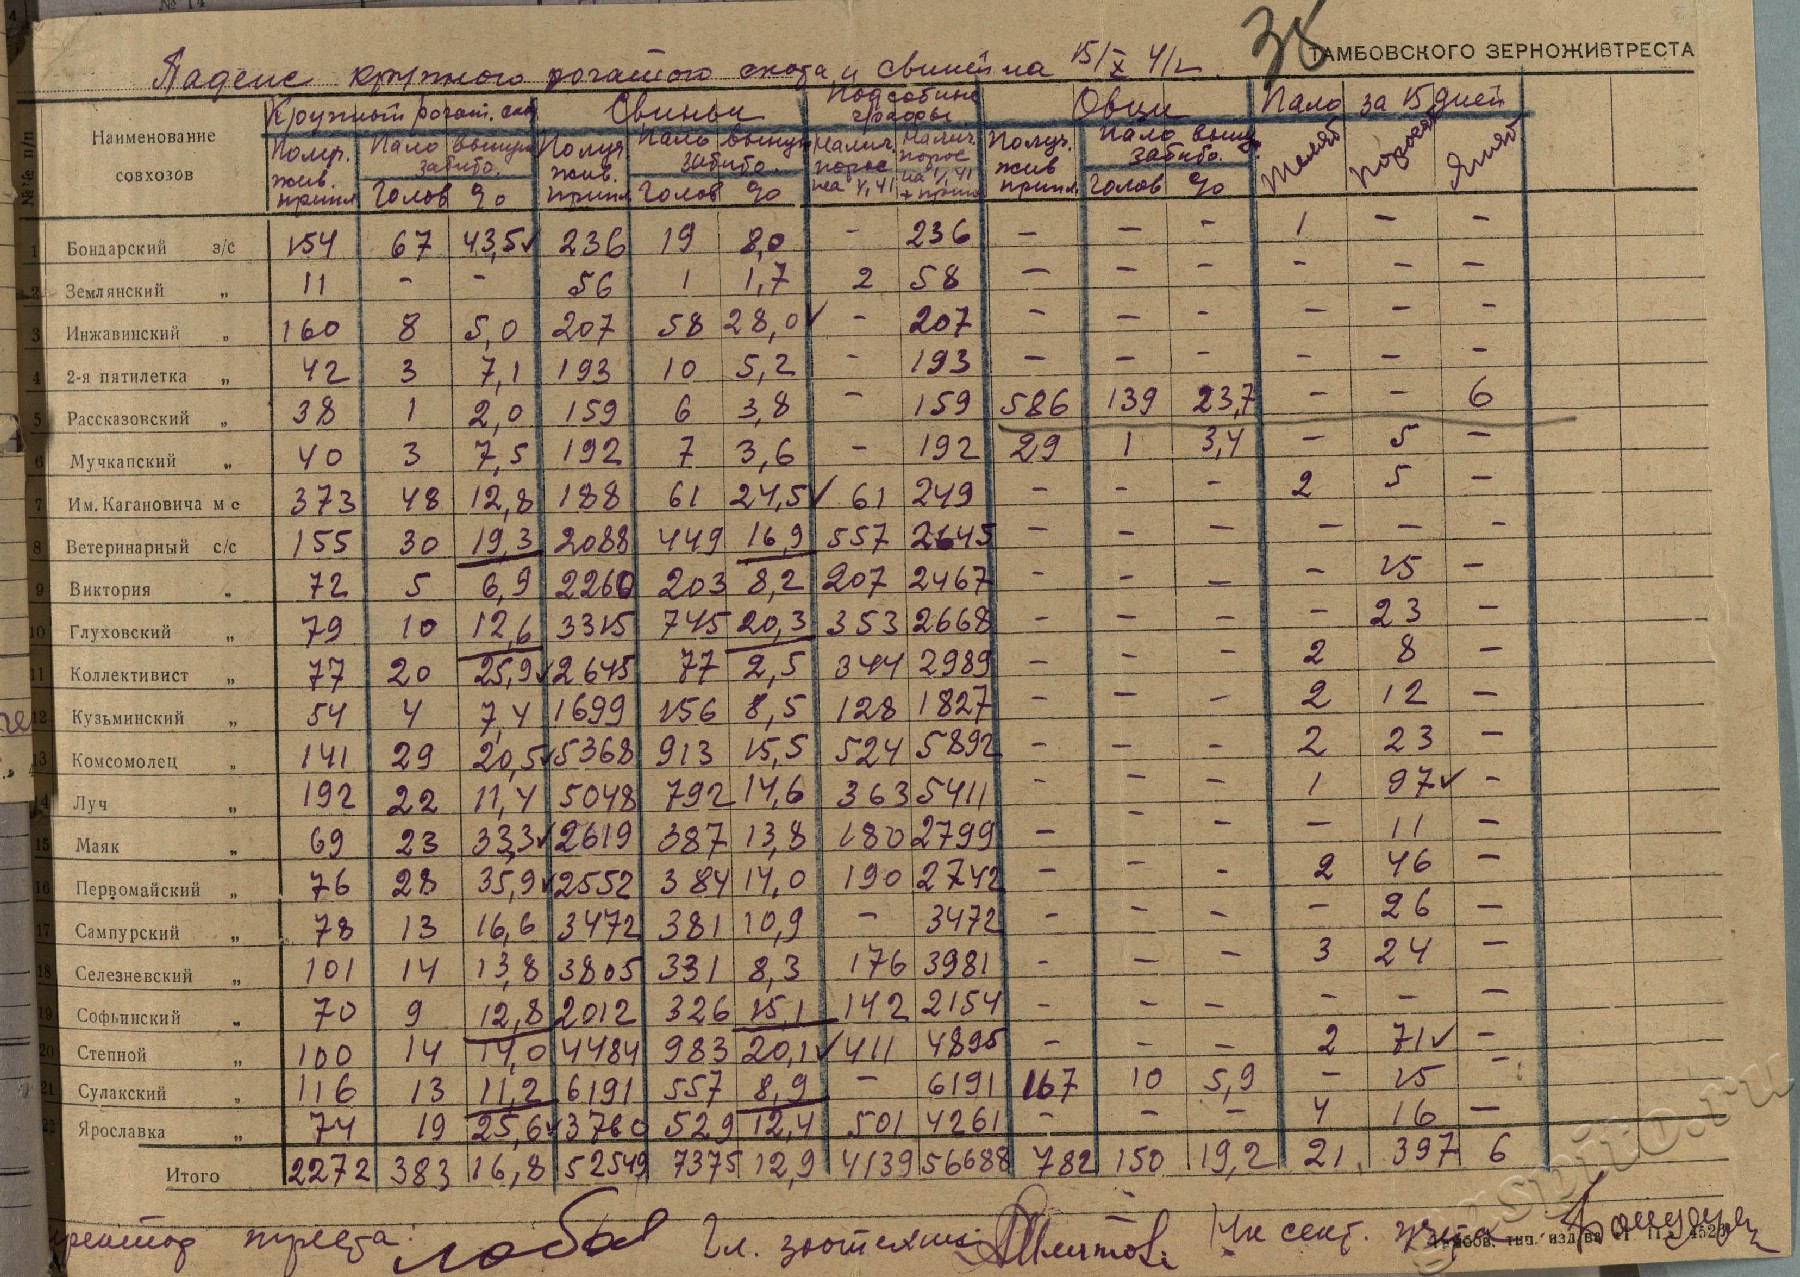 № 14
38
ТАМБОВСКОГО ЗЕРНОЖИВТРЕСТА
Падение крупного рогатого скота и свиней на 15/X 41 г.
№№ п/п Наименование совхозов Крупный рогат. скот Свиньи Подсобные Овцы Пало за 15 дней
Получ. жив. припл. Пало вынужд забито. Получ жив. припл Пало вынужд забито. Налич. порос на 1/I 41 Налич. порос на 1/I 41 + припл Получ. жив припл. Пало вынуж. забито. Телят Поросят Ягнят
Голов % Голов % Голов %
1 Бондарский з/с 154 67 43,5✓ 236 19 8,0 - 236 - - - 1 - -
2 Землянский „ 11 - - 56 1 1,7 2 58 - - - - - -
3 Инжавинский „ 160 8 5,0 207 58 28,0✓ - 207 - - - - - -
4 2-я пятилетка „ 42 3 7,1 193 10 5,2 - 193 - - - - - -
5 Рассказовский „ 38 1 2,0 159 6 3,8 - 159 586 139 23,7 - - 6
6 Мучкапский „ 40 3 7,5 192 7 3,6 - 192 29 1 3,4 - 5 -
7 Им. Кагановича м с 373 48 12,8 188 61 24,5✓ 61 249 - - - 2 5 -
8 Ветеринарный с/с 155 30 19,3 2088 449 16,9 557 2645 - - - - - -
9 Виктория „ 72 5 6,9 2260 203 8,2 207 2467 - - - - 15 -
10 Глуховский „ 79 10 12,6 3315 745 20,3 353 2668 - - - - 23 -
11 Коллективист „ 77 20 25,9✓ 2645 77 2,5 344 2989 - - - 2 8 -
12 Кузьминский „ 54 4 7,4 1699 156 8,5 128 1827 - - - 2 12 -
13 Комсомолец „ 141 29 20,5✓ 5368 913 15,5 524 5892 - - - 2 23 -
14 Луч „ 192 22 11,4 5048 792 14,6 363 5411 - - - 1 97✓ -
15 Маяк „ 69 23 33,3✓ 2619 387 13,8 180 2799 - - - - 11 -
16 Первомайский „ 76 28 35,9✓ 2552 384 14,0 190 2742 - - - 2 46 -
17 Сампурский „ 78 13 16,6 3472 381 10,9 - 3472 - - - - 26 -
18 Селезневский „ 101 14 13,8 3805 331 8,3 176 3981 - - - 3 24 -
19 Софьинский „ 70 9 12,8 2012 326 15,1 142 2154 - - - - - -
20 Степной „ 100 14 14,0 4484 983 20,1✓ 411 4895 - - - 2 71✓ -
21 Сулакский „ 116 13 11,2 6191 557 8,9 - 6191 167 10 5,9 - 15 -
22 Ярославка „ 74 19 25,6✓ 3760 529 12,4 501 4261 - - - 4 16 -
Итого 2272 383 16,8 52549 7375 12,9 4139 56688 782 150 19,2 21 397 6
Директор треста: Гл. зоотехник Нч сект.